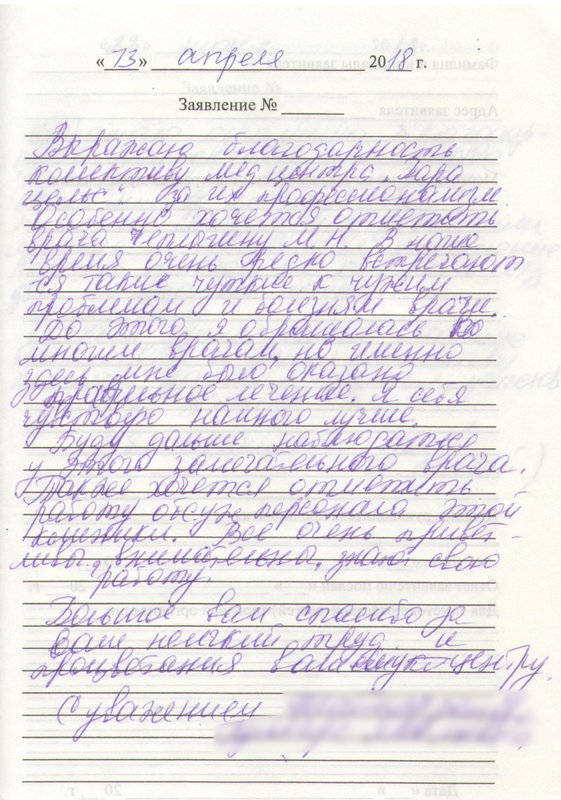 « 13 » апреля 2018 г.
Заявление №
Выражаю благодарность
колективу мед центра „Пара
цельс". За их профессионализм.
Особенно хочется отметить
врача М. Н. В наше
время очень редко встречают
ся такие чуткие к чужим
проблемам и болезням врачи.
До этого, я обращалась ко
многим врагам, но именно
здесь мне было оказано
правильное лечение. Я себя
чувствую намного лучше.
Буду дальше наблюдаться
у этого замечательного врача.
Также хочется отметить
работу обслуж персонала этой
клиники. Все очень привет-
ливы, внимательны, знают свою
работу.
Большое вам спасибо за
ваш нелёгкий труд и
процветания вашему центру.
С уважением